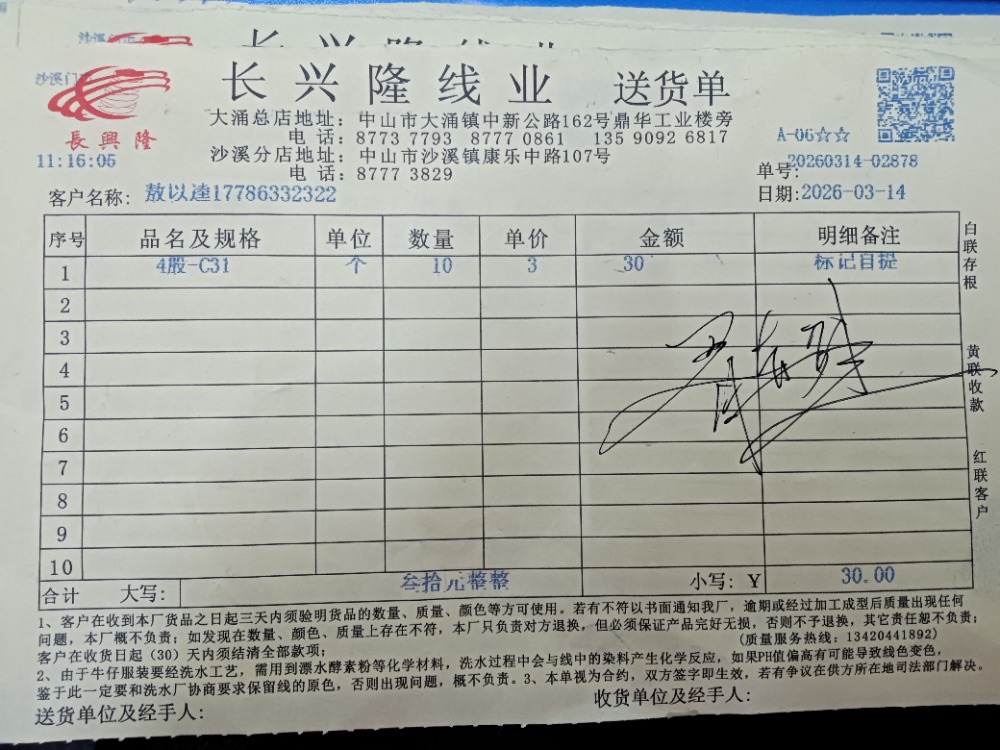 长兴隆线业 送货单
長興隆
大涌总店地址：中山市大涌镇中新公路162号鼎华工业楼旁
电 话：8773 7793 8777 0861 135 9092 6817
沙溪分店地址：中山市沙溪镇康乐中路107号
电 话：8777 3829
沙溪门
A-06☆☆
11:16:05
单号：20260314-02878
客户名称：敖以逵17786332322
日期：2026-03-14
序号 品名及规格 单位 数量 单价 金额 明细备注
1 4股-C31 个 10 3 30 标记自提
2
3
4
5
6
7
8
9
10
合计 大写： 叁拾元整整 小写：Y 30.00
白联存根
黄联收款
红联客户
1、客户在收到本厂货品之日起三天内须验明货品的数量、质量、颜色等方可使用。若有不符以书面通知我厂，逾期或经过加工成型后质量出现任何
问题，本厂概不负责；如发现在数量、颜色、质量上存在不符，本厂只负责对方退换，但必须保证产品完好无损，否则不予退换，其它责任恕不负责；
客户在收货日起（30）天内须结清全部款项； (质量服务热线：13420441892)
2、由于牛仔服装要经洗水工艺，需用到漂水酵素粉等化学材料，洗水过程中会与线中的染料产生化学反应，如果PH值偏高有可能导致线色变色，
鉴于此一定要和洗水厂协商要求保留线的原色，否则出现问题，概不负责。3、本单视为合约，双方签字即生效，若有争议在供方所在地司法部门解决。
送货单位及经手人： 收货单位及经手人：